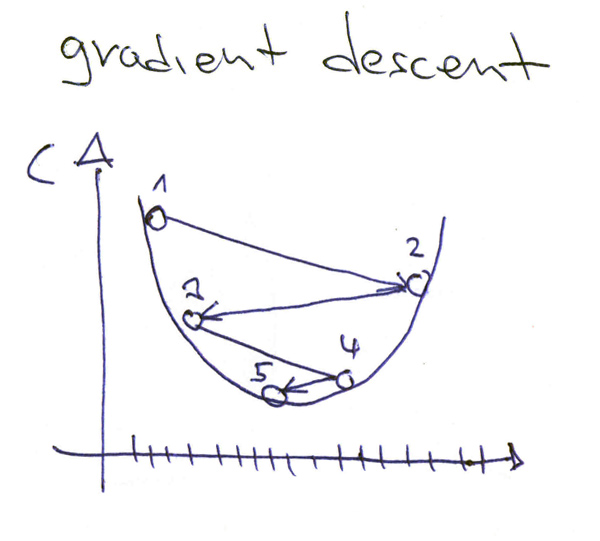 gradient descent
C
1
2
3
4
5